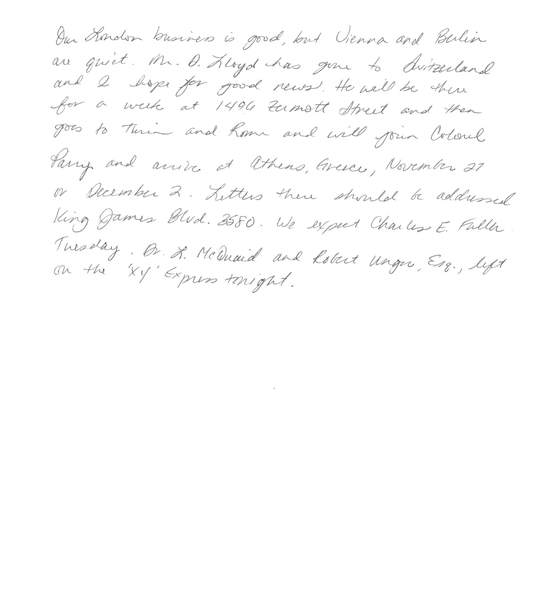 Our London business is good, but Vienna and Berlin
are quiet. Mr. D. Lloyd has gone to Switzerland
and I hope for good news. He will be there
for a week at 1496 Zermott Street and then
goes to Turin and Rome and will join Colonel
Parry and arrive at Athens, Greece, November 27
or December 2. Letters there should be addressed
King James Blvd. 3580. We expect Charles E. Fuller
Tuesday. Dr. L. McQuaid and Robert Unger, Esq., left
on the 'XY' Express tonight.